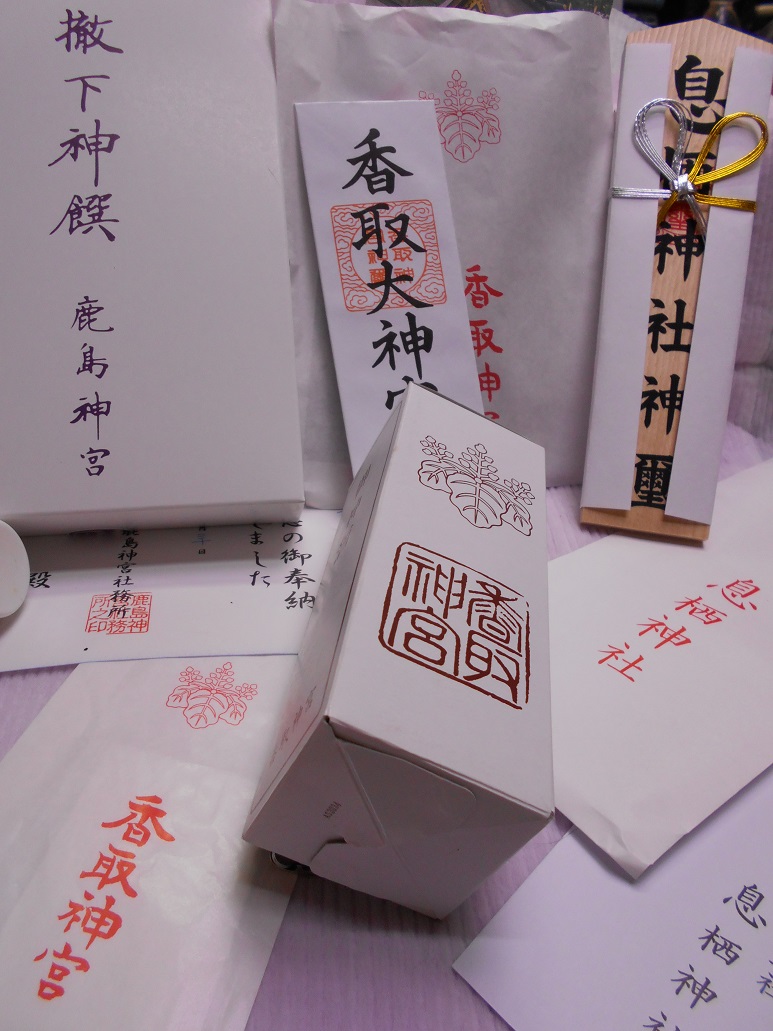 撤下神饌
鹿島神宮
香取大神宮
香取神
息栖神社神璽
の御奉納
しました
鹿島神宮社務所
鹿島神
宮社務
所之印
殿
香取
神宮
息栖神社
香取神宮
息栖神社